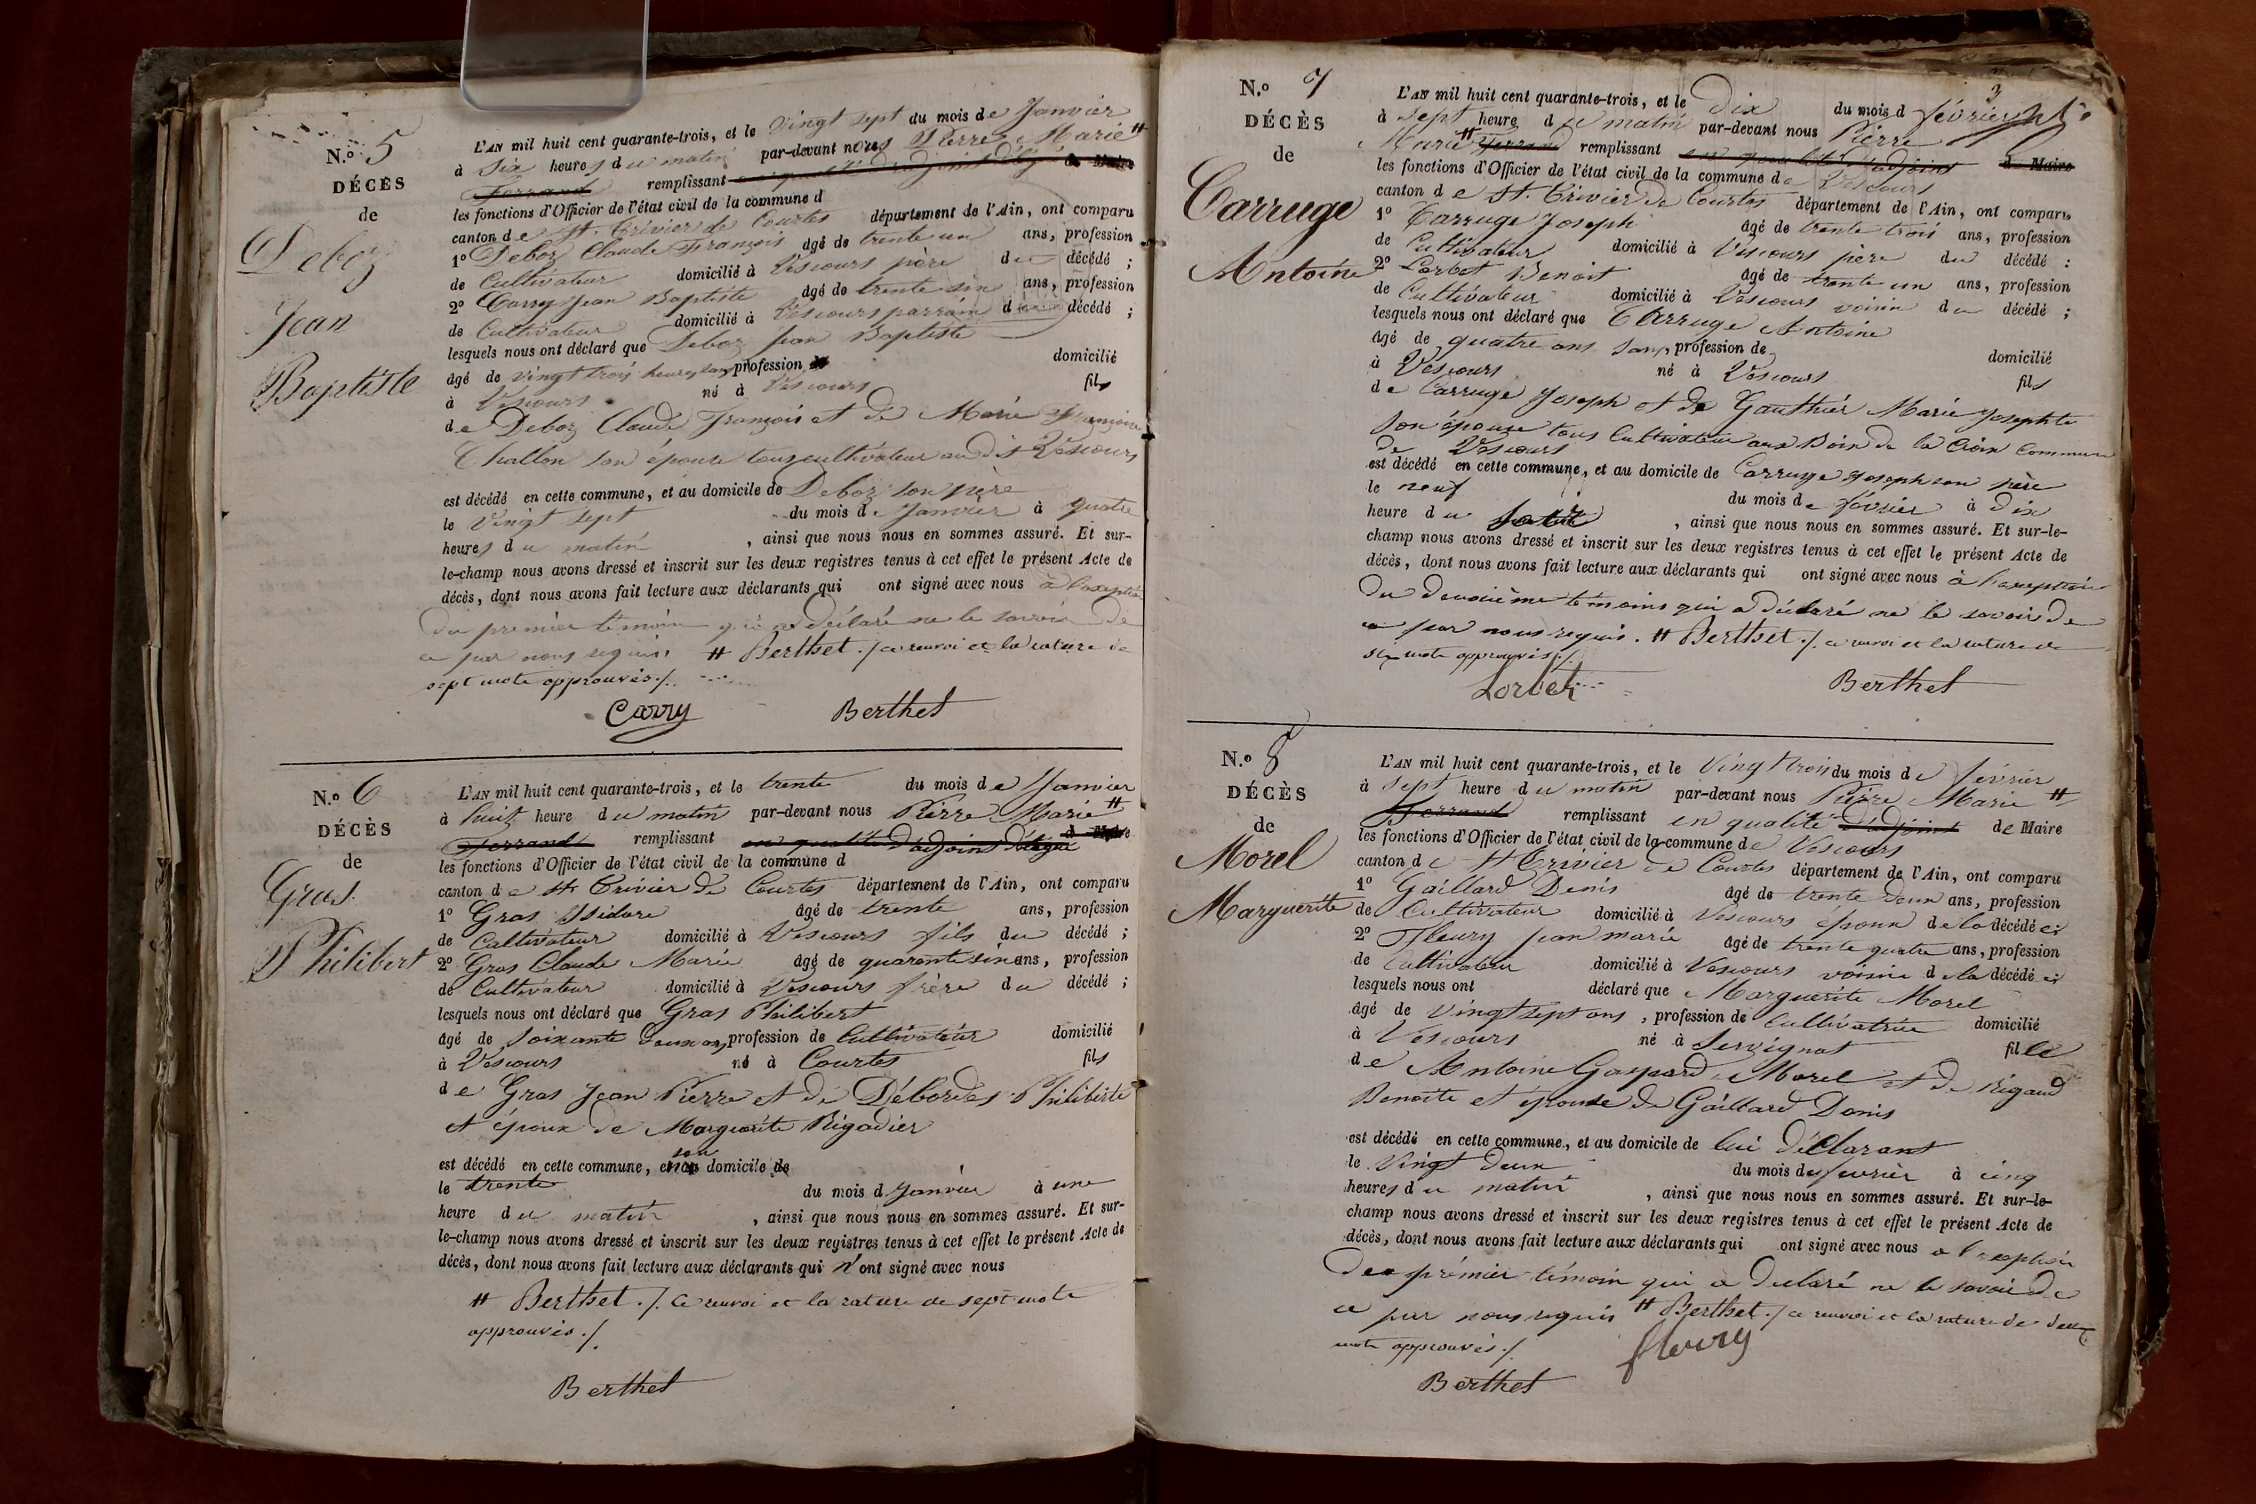 N.o 5
DÉCÈS
de
Deboz
Jean
Baptiste
L'AN mil huit cent quarante-trois, et le vingt sept du mois de Janvier
à six heures du matin par-devant nous Pierre Marie #
Ferrand remplissant en qualité d'adjoint délég de Maire
les fonctions d'Officier de l'état civil de la commune d
canton de St. Trivier de Courtes département de l'Ain, ont comparu
1o Deboz Claude François âgé de trente un ans, profession
de Cultivateur domicilié à Vescours père du décédé ;
2o Carry Jean Baptiste âgé de trente six ans, profession
de Cultivateur domicilié à Vescours parrain du décédé ;
lesquels nous ont déclaré que Deboz Jean Baptiste
âgé de vingt trois heures sans profession de domicilié
à Vescours né à Vescours fils
de Deboz Claude François et de Marie Françoise
Challon son épouse tous cultivateur au dit Vescours
est décédé en cette commune, et au domicile de Deboz son père
le vingt sept du mois de Janvier à quatre
heures du matin , ainsi que nous nous en sommes assuré. Et sur-
le-champ nous avons dressé et inscrit sur les deux registres tenus à cet effet le présent Acte de
décès, dont nous avons fait lecture aux déclarants qui ont signé avec nous à l'exception
du premier témoin qui a déclaré ne le savoir de
ce par nous requis # Berthet ./. ce renvoi et la rature de
sept mots approuvés ./.
Carry Berthet
N.o 6
DÉCÈS
de
Gras
Philibert
L'AN mil huit cent quarante-trois, et le trente du mois de Janvier
à huit heure du matin par-devant nous Pierre Marie #
Ferrand remplissant en qualité d'adjoint délégué d Maire
les fonctions d'Officier de l'état civil de la commune d
canton de St Trivier de Courtes département de l'Ain, ont comparu
1o Gras Isidore âgé de trente ans, profession
de Cultivateur domicilié à Vescours fils du décédé ;
2o Gras Claude Marie âgé de quarante six ans, profession
de Cultivateur domicilié à Vescours frère du décédé ;
lesquels nous ont déclaré que Gras Philibert
âgé de soixante douze ans, profession de Cultivateur domicilié
à Vescours né à Courtes fils
de Gras Jean Pierre et de Débordes Philiberte
et époux de Marguerite Rigadier
est décédé en cette commune, en son domicile de
le trente du mois d Janvier à une
heure du matin , ainsi que nous nous en sommes assuré. Et sur-
le-champ nous avons dressé et inscrit sur les deux registres tenus à cet effet le présent Acte de
décès, dont nous avons fait lecture aux déclarants qui n'ont signé avec nous
# Berthet ./. ce renvoi et la rature de sept mots
approuvés ./.
Berthet
3
N.o 7
DÉCÈS
de
Carruge
Antoine
L'AN mil huit cent quarante-trois, et le dix du mois d février
à sept heure du matin par-devant nous Pierre
Marie # Ferrand remplissant en qualité d'adjoint de Maire
les fonctions d'Officier de l'état civil de la commune de Vescours
canton de St. Trivier de Courtes département de l'Ain, ont comparu
1o Carruge Joseph âgé de trente trois ans, profession
de Cultivateur domicilié à Vescours père du décédé ;
2o Lorbet Benoit âgé de trente un ans, profession
de Cultivateur domicilié à Vescours voisin du décédé ;
lesquels nous ont déclaré que Carruge Antoine
âgé de quatre ans sans profession de domicilié
à Vescours né à Vescours fils
de Carruge Joseph et de Gauthier Marie Josephte
son épouse tous Cultivateur aux Bois de la Croix commune
de Vescours
est décédé en cette commune, et au domicile de Carruge Joseph son père
le neuf du mois de février à dix
heure du soir , ainsi que nous nous en sommes assuré. Et sur-le-
champ nous avons dressé et inscrit sur les deux registres tenus à cet effet le présent Acte de
décès, dont nous avons fait lecture aux déclarants qui ont signé avec nous à l'exception
du deuxième témoins qui a déclaré ne le savoir de
ce par nous requis. # Berthet ./. ce renvoi et la rature de
six mots approuvés ./.
Lorbet Berthet
N.o 8
DÉCÈS
de
Morel
Marguerite
L'AN mil huit cent quarante-trois, et le vingt trois du mois de février
à sept heure du matin par-devant nous Pierre Marie #
Ferrand remplissant en qualité d'adjoint de Maire
les fonctions d'Officier de l'état civil de la commune de Vescours
canton de St Trivier de Courtes département de l'Ain, ont comparu
1o Gaillard Denis âgé de trente deux ans, profession
de Cultivateur domicilié à Vescours époux de la décédée ;
2o Fleury Jean marie âgé de trente quatre ans, profession
de Cultivateur domicilié à Vescours voisin de la décédée ;
lesquels nous ont déclaré que Marguerite Morel
âgé de vingt sept ans , profession de Cultivatrice domicilié
à Vescours né à Servignat fille
de Antoine Gaspard Morel et de Rigaud
Benoite et épouse de Gaillard Denis
est décédé en cette commune, et au domicile de lui déclarant
le vingt deux du mois de février à cinq
heures du matin , ainsi que nous nous en sommes assuré. Et sur-le-
champ nous avons dressé et inscrit sur les deux registres tenus à cet effet le présent Acte de
décès, dont nous avons fait lecture aux déclarants qui ont signé avec nous à l'exception
du premier témoin qui a déclaré ne le savoir de
ce par nous requis # Berthet ./. ce renvoi et la rature de deux
mots approuvés ./. fleury
Berthet